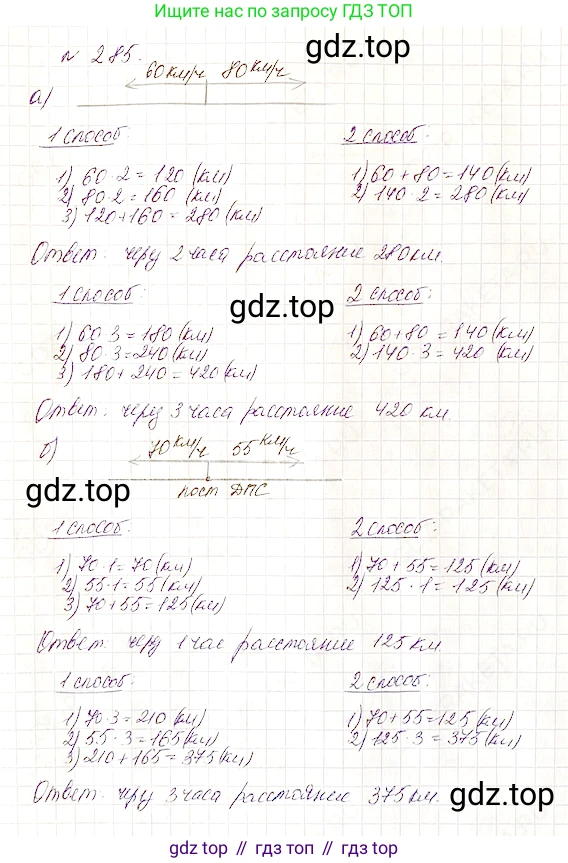 Ищите нас в поисковике по запросу ГДЗ ТОП
n 285.
60 км/ч 80 км/ч
gdz.top
а)
1 способ:
2 способ:
1) 60 · 2 = 120 (км)
1) 60 + 80 = 140 (км)
2) 80 · 2 = 160 (км)
2) 140 · 2 = 280 (км)
3) 120 + 160 = 280 (км)
Ответ: через 2 часа расстояние 280 км.
1 способ:
gdz.top
2 способ:
1) 60 · 3 = 180 (км)
1) 60 + 80 = 140 (км)
2) 80 · 3 = 240 (км)
2) 140 · 3 = 420 (км)
3) 180 + 240 = 420 (км)
Ответ: через 3 часа расстояние 420 км.
gdz.top
б)
70 км/ч 55 км/ч
gdz.top
пост ДПС
1 способ:
2 способ:
1) 70 · 1 = 70 (км)
1) 70 + 55 = 125 (км)
2) 55 · 1 = 55 (км)
2) 125 · 1 = 125 (км)
3) 70 + 55 = 125 (км)
Ответ: через 1 час расстояние 125 км
1 способ:
2 способ:
1) 70 · 3 = 210 (км)
1) 70 + 55 = 125 (км)
2) 55 · 3 = 165 (км)
2) 125 · 3 = 375 (км)
3) 210 + 165 = 375 (км)
Ответ: через 3 часа расстояние 375 км.
gdz.top
gdz.top // гдз.топ // gdz.top